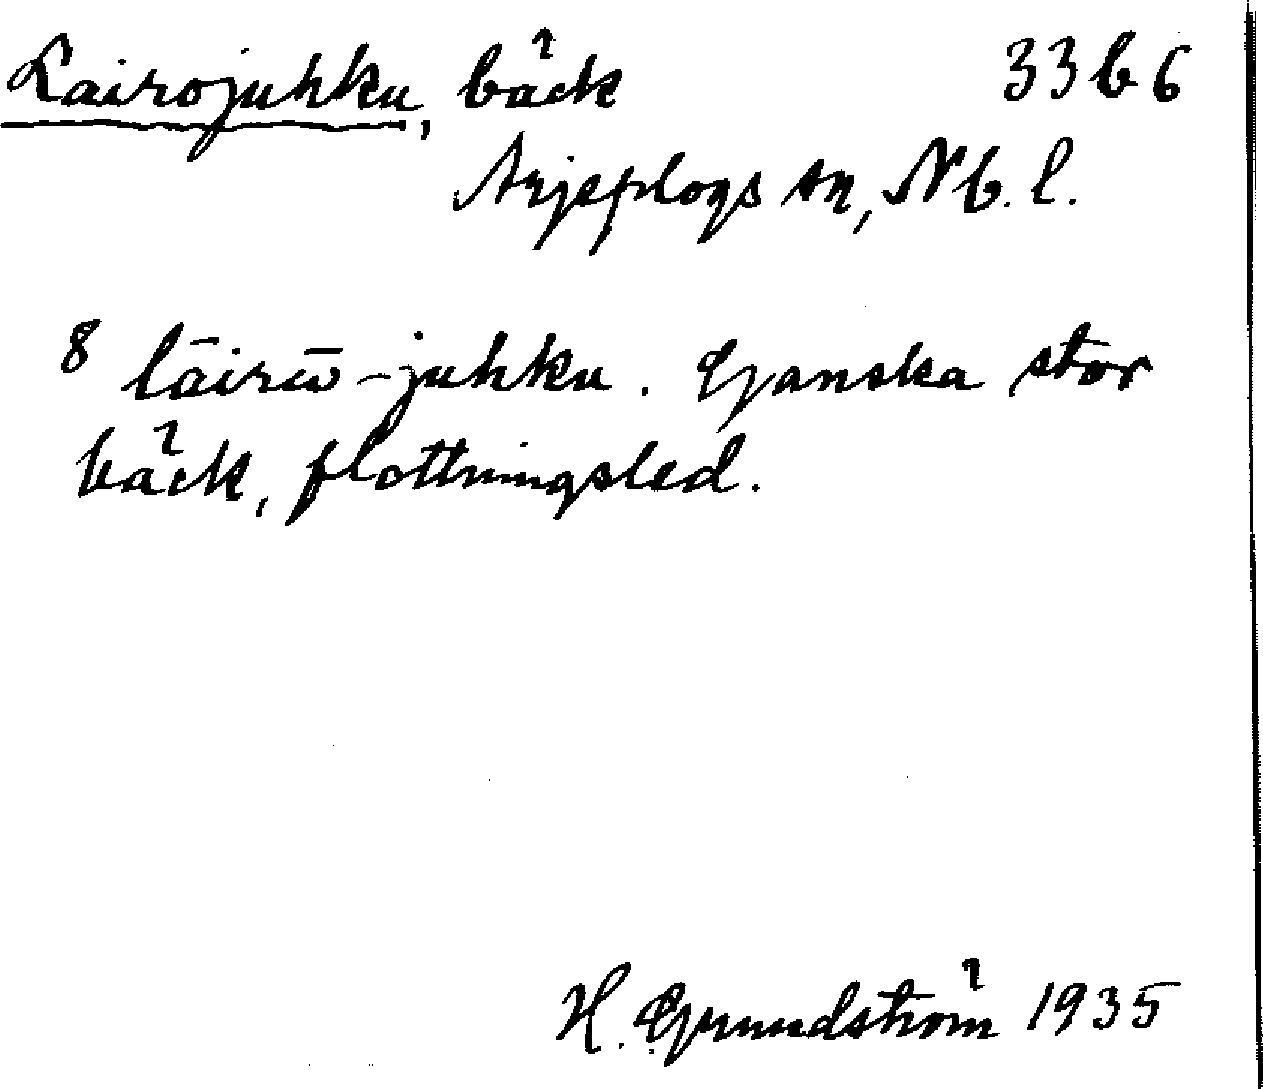 Lairojuhku, bäck 33b6
Arjeplogs sn, Nb. l.
8 lāirō-juhku. Ganska stor
bäck, flottningsled.
H. Grundström 1935